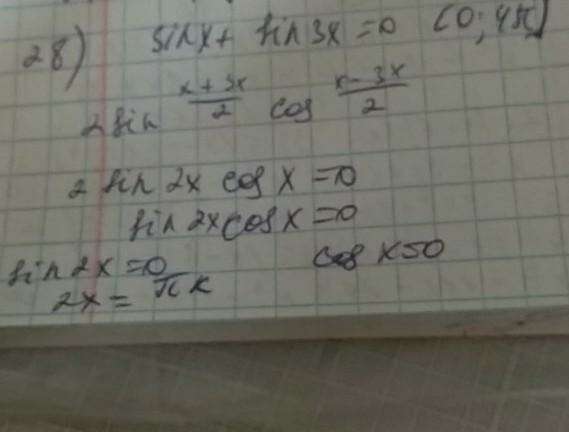 28) sin x + sin 3x = 0 (0; 4π)
2 sin (x + 3x)/2 cos (x - 3x)/2
2 sin 2x cos x = 0
sin 2x cos x = 0
sin 2x = 0 cos x = 0
2x = πk